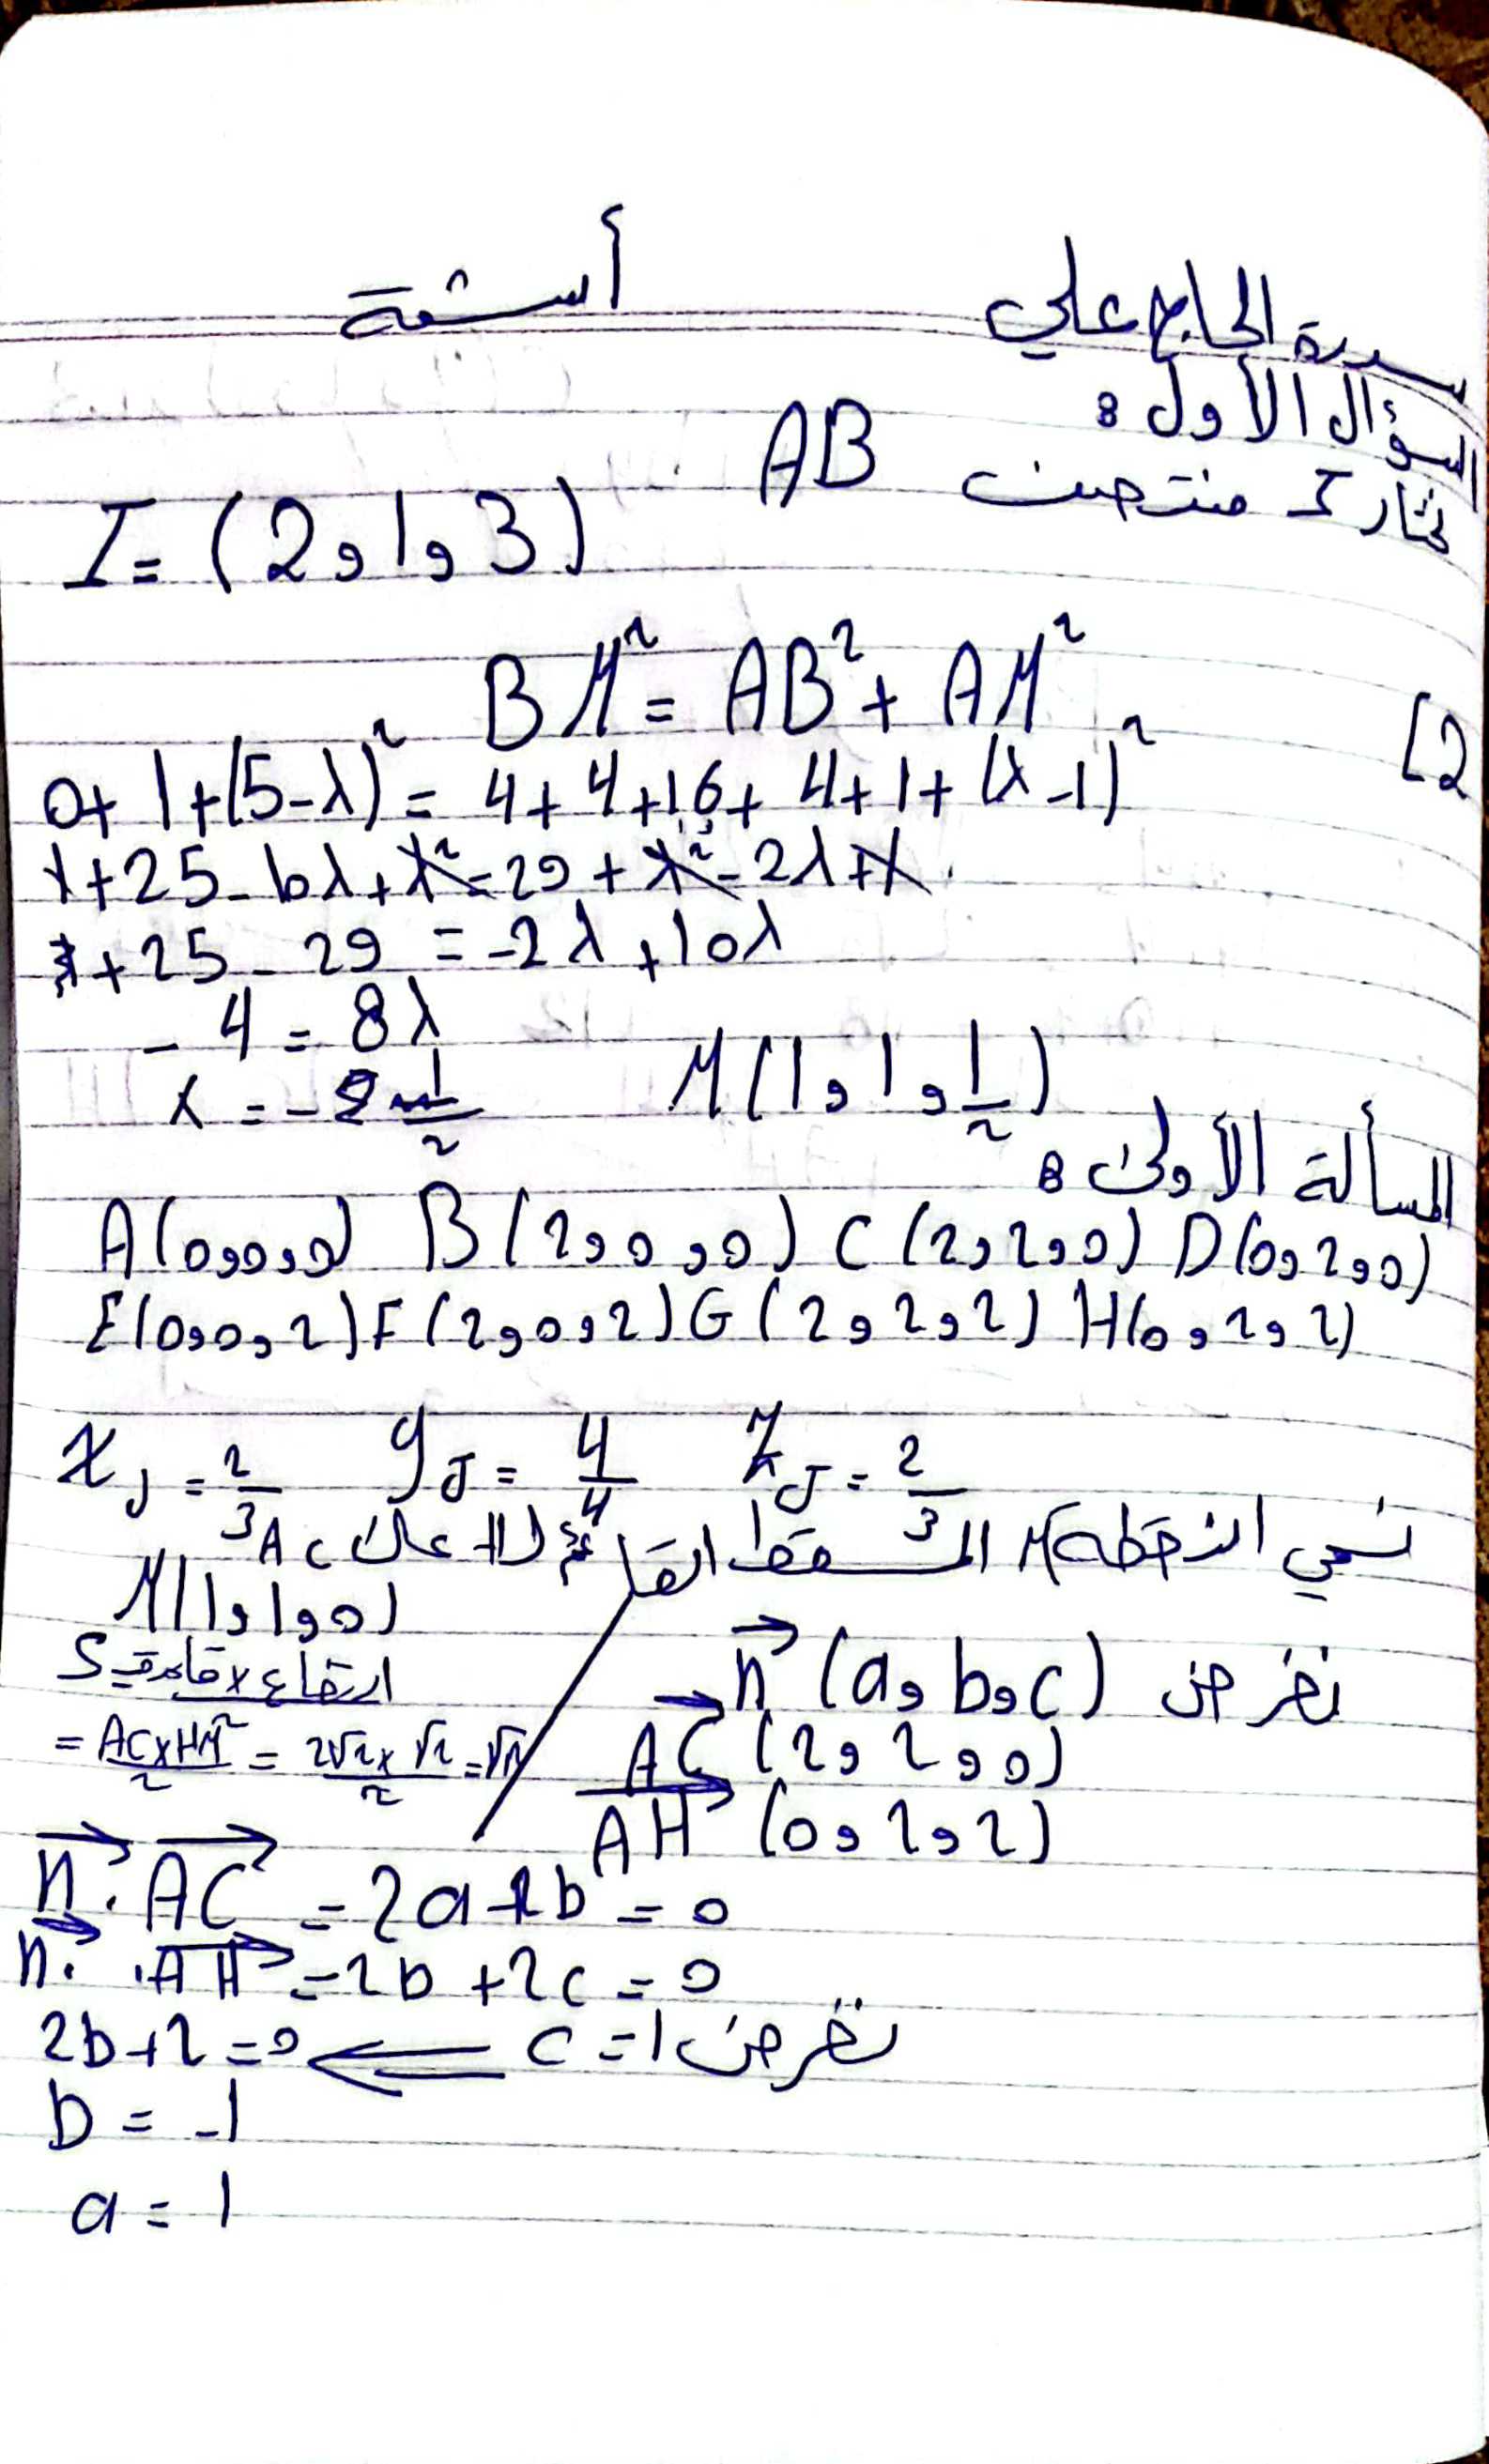 سدرة الحاج علي أستمة
السؤال الأول :
نختار I منتصف AB
I = (2 و 1 و 3)
2] BM² = AB² + AM²
0 + 1 + (5 - λ)² = 4 + 4 + 16 + 4 + 1 + (λ - 1)²
1 + 25 - 10λ + λ² = 29 + λ² - 2λ + 1
+ 25 - 29 = -2λ + 10λ
- 4 = 8λ
λ = - 1/2 M(1 و 1 و 1/2)
المسألة الأولى :
A(0 و 0 و 0) B(2 و 0 و 0) C(2 و 2 و 0) D(0 و 2 و 0)
E(0 و 0 و 2) F(2 و 0 و 2) G(2 و 2 و 2) H(0 و 2 و 2)
x_J = 2/3 y_J = 4/4 z_J = 2/3
نسمي النقطة M المسقط القائم لـ H على AC
M(1 و 1 و 0)
S = ارتفاع × قاعدة / 2
= AC × HM / 2 = 2√2 × √2 / 2 = √2
نفرض n⃗ (a و b و c)
AC⃗ (2 و 2 و 0)
AH⃗ (0 و 2 و 2)
n⃗ . AC⃗ = 2a + 2b = 0
n⃗ . AH⃗ = 2b + 2c = 0
نفرض c = 1 ⟸ 2b + 2 = 0
b = -1
a = 1